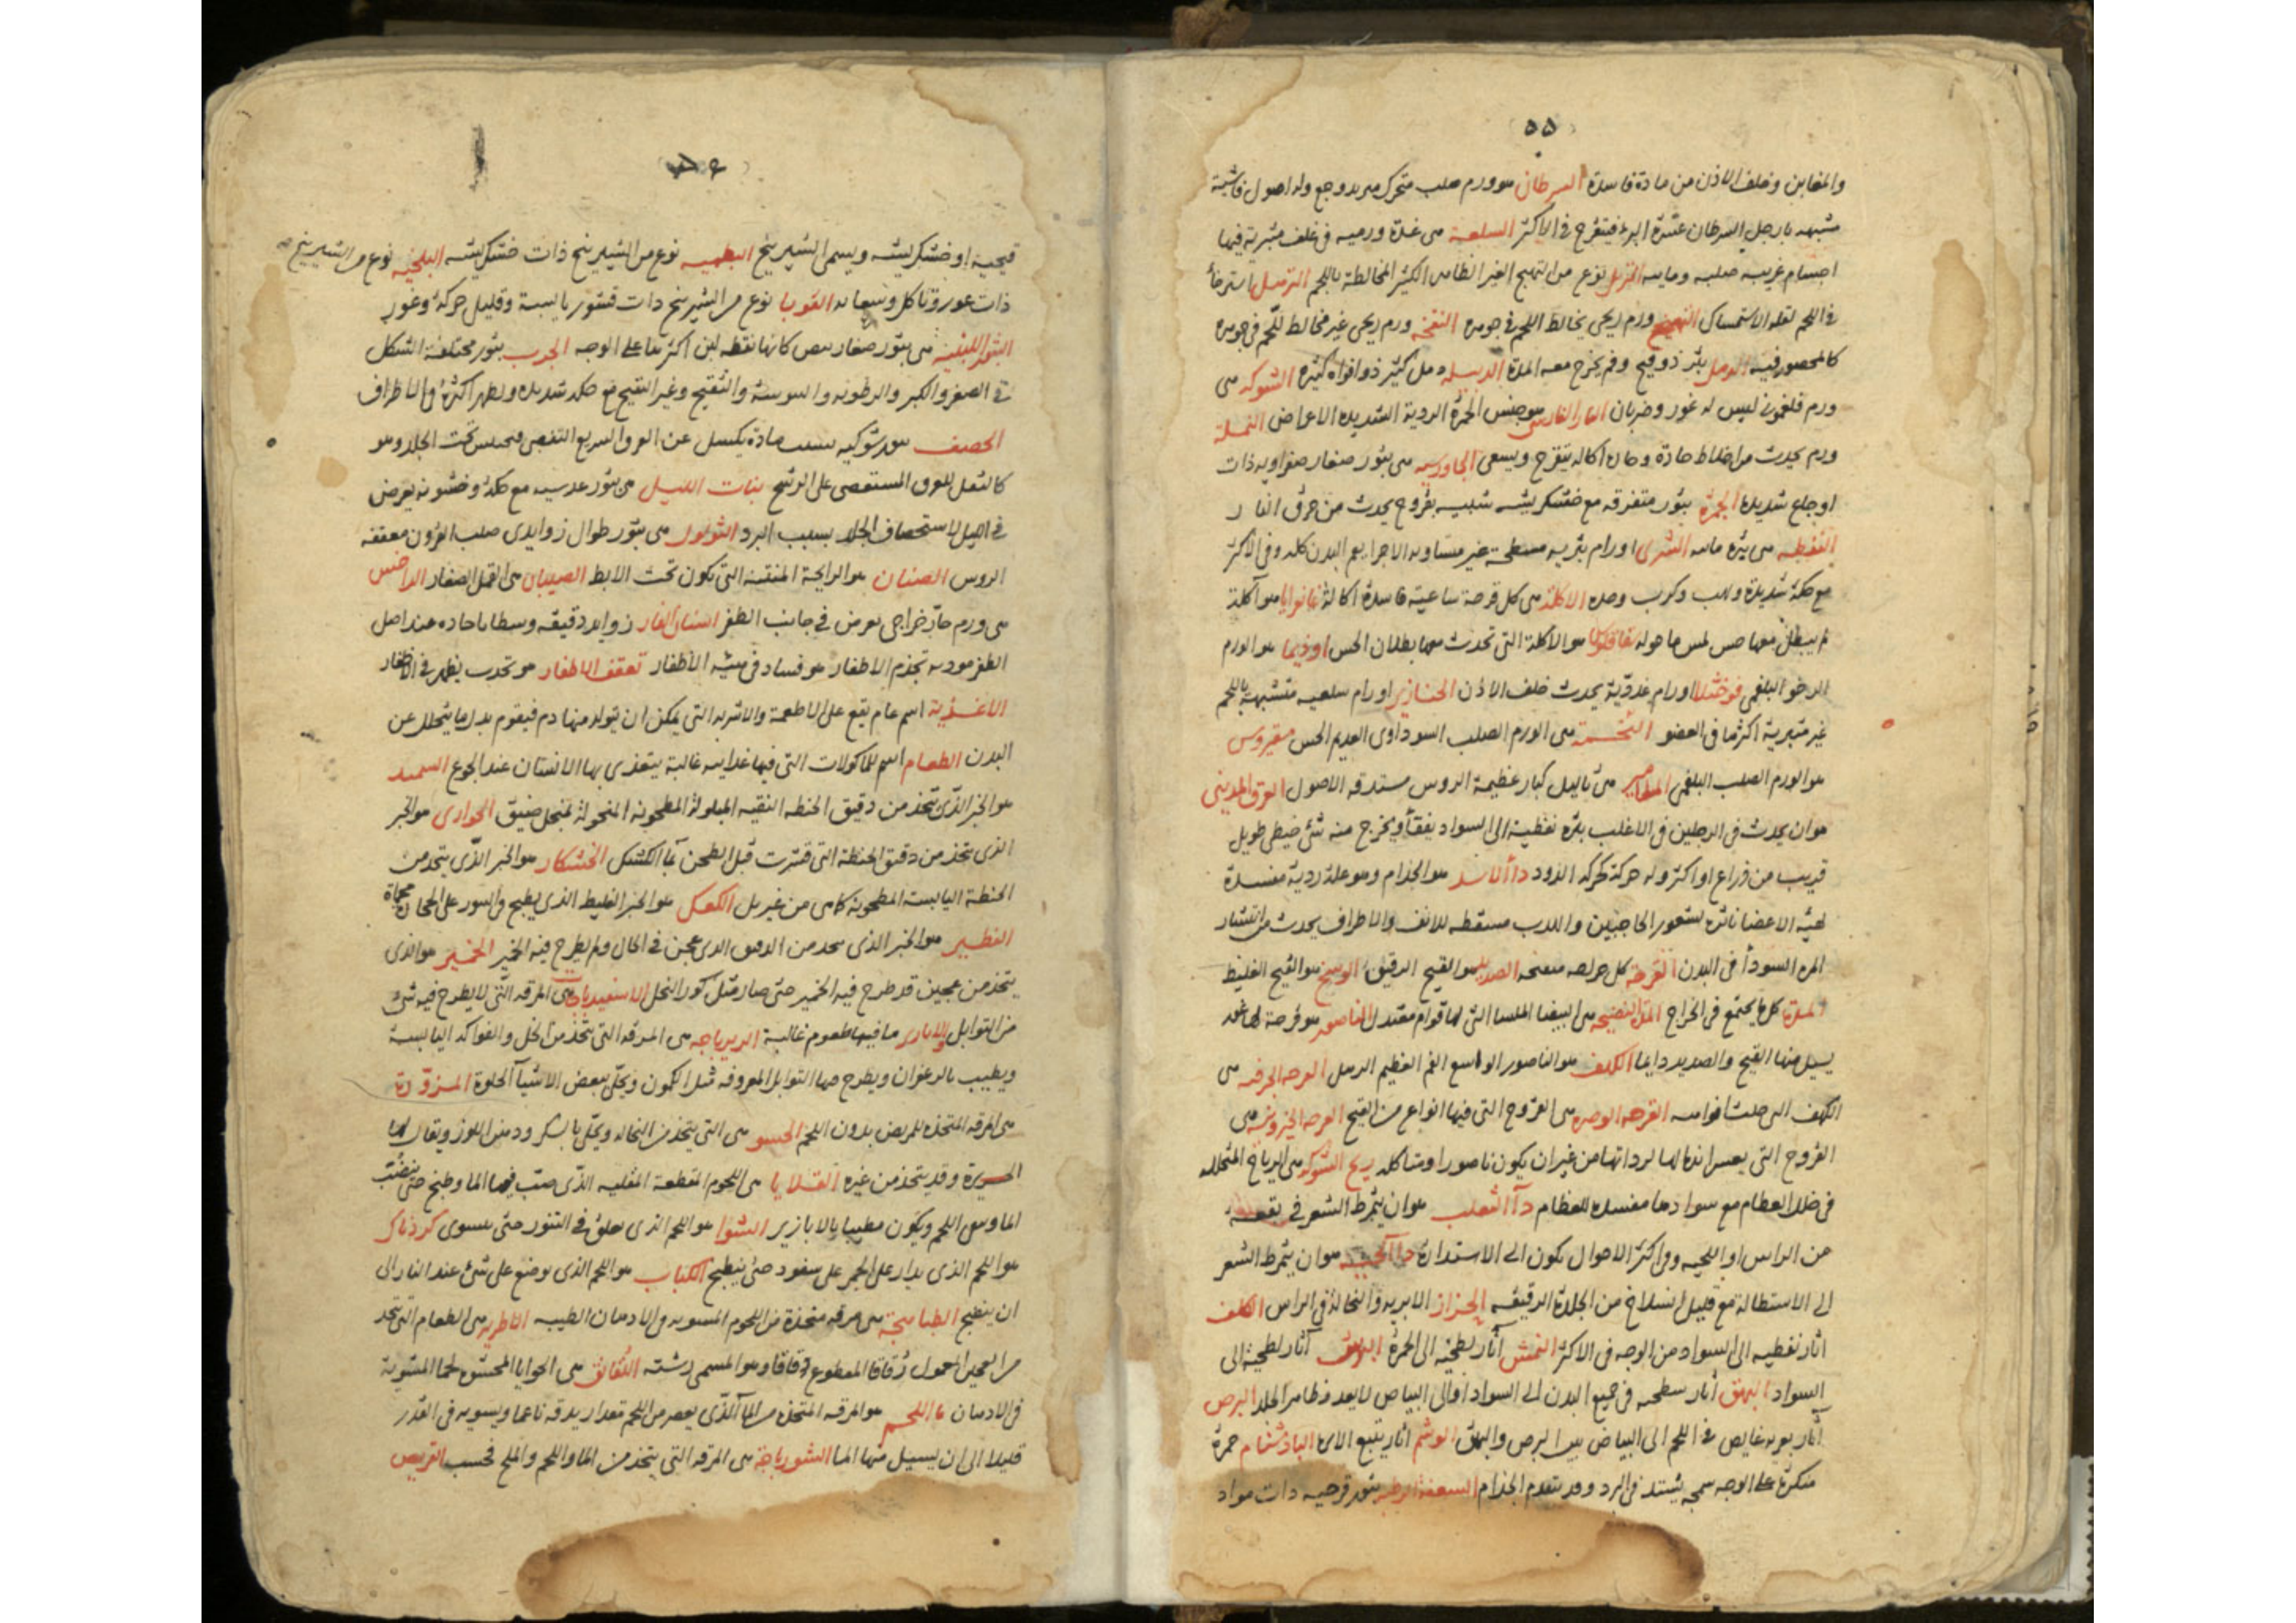 ٥٥
والمغابن وخلف الاذن من مادة فاسدة السرطان هو ورم صلب متحرك مربد وجع وله اصول فاشية
مشبهه بارجل السرطان عسرة البرء فيتقرح فى الاكثر السلعة هى غدة ورميه فى غلف متبرية فيها
اجسام غريبه صلبه ومايه التربل نوع من التهيج الغير الظاهر الكثير المخالطة باللحم الترهل استرخاء
فى اللحم لقلة الاستمساك التهيج ورم ريحى يخالط اللحم فى جوهره النفخه ورم ريحى غير مخالط للحم فى جوهره
كالمحصور فيه الدمل بثر ذو قيح وفم يخرج معه المدة الدبيله دمل كثير ذو افواه كثيرة الشوكه هى
ورم فلغمونى ليس له غور وضربان النار الفارسى هو جنس الجمرة الردية الشديده الاعراض النملة
ورم يحدث من اخلاط حادة وحاره اكاله يتقرح ويسعى الجاورسيه هى بثور صغار صفراويه ذات
اوجاع شديدة الجمرة بثور متفرقه مع خشكريشه شبيه بقروح يحدث من حرق النار
النفطه هى بثره مائيه الشرى اورام بثريه مسطحة غير متساويه الاجزا يعم البدن كله وفى الاكثر
مع حكة شديدة ولهب وكرب وحده الاكلة هى كل قرحة ساعية فاسدة اكالة غانغرايا هو آكلة
لم يبطل معها حس لمس ما حوله سقاقلوس هو الاكلة التى تحدث معها بطلان الحس اوذيما هو الورم
الرخو البلغمى فوخثلا اورام غددية يحدث خلف الاذن الخنازير اورام سلعيه متشبهة باللحم
غير متبرية اكثرها فى العضو هى الورم الصلب السوداوى العديم الحس سقيروس
هو الورم الصلب البلغمى المسامير هى ثاليل كبار عظيمة الروس مستدقه الاصول العرق المدينى
هو ان يحدث فى الرجلين فى الاغلب بثرة نفطية الى السواد يفقأ ويخرج منه شئ خيطى طويل
قريب من ذراع او اكثر وله حركة كحركه الدود داء الاسد هو الجذام وهو علة ردية مفسدة
لهيئة الاعضا ناثره لشعور الحاجبين والهدب مسقطه للانف والاطراف يحدث من انتشار
المره السودأ فى البدن القرحة كل جراحه متقيحه الصديد هو القيح الرقيق الوسخ هو القيح الغليظ
المدة كل ما يجتمع فى الخراج المدة النضيجه هى البيضا الملسا التى لها قوام معتدل الناصور هو قرحة لها غور
يسيل منها القيح والصديد دايما الكهف هو الناصور الواسع الفم العظيم الدمل القرحه الخرفه هى
الكهف التى صلبت افواهه القرحه الوضره هى القروح التى فيها انواع من القيح القرحه الخيرونيه هى
القروح التى يعسر اندمالها لرداتها من غير ان يكون ناصورا ومتاكله ريح الشوكه هى الرياح المتخلله
فى خلل العظام مع سوادها مفسده للعظام داء الثعلب هو ان يتمرط الشعر فى بقعه
من الراس او اللحيه وفى اكثر الاحوال يكون الى الاستدارة داء الحيه هو ان يتمرط الشعر
الى الاستطالة مع قليل انسلاخ من الجلدة الرقيقه الحزاز الابريه والنخالة فى الراس الكلف
اثار نقطيه الى السواد من الوجه فى الاكثر النمش آثار لطخيه الى الحمرة البرش آثار لطخية الى
السواد البهق أثار سطحيه فى جميع البدن الى السواد او الى البياض لا يعد فظاهر الجلد البرص
آثار غايص فى اللحم الى البياض بين البرص والبهق الوشم اثار يتبع الابر الباذشنام حمرة
منكرة على الوجه سمجه يشتد فى البرد وقد يتقدم الجذام السعفة الرطبه بثور قرحيه ذات مواد
٥٦
قيحية او خشكريشه ويسمى الشيرينج البطميه نوع من الشيرينج ذات خشكريشه البلخيه نوع من الشيرينج
ذات غور وتاكل وسعايه القوبا نوع من الشيرينج ذات قشور يابسة وقليل حركة وغور
البثور اللبنيه هى بثور صغار بيض كانها نقطه لبن اكثرها على الوجه الجرب بثور مختلفة الشكل
فى الصغر والكبر والرطوبه واليبوسة والتقيح وغير التقيح مع حكه شديده ويظهر اكثره فى الاطراف
الحصف بثور شوكيه بسبب مادة يكسل عن العرق السريع التفصى فيحتبس تحت الجلد وهو
كالثفل للعرق المستعصى على الرشح بنات الليل هى بثور عدسيه مع حكة وخشونه يعرض
فى الليل لاستحصاف الجلد بسبب البرد الثولول هى بثور طوال زوايدى صلب القرون معقفه
الروس الصنان هو الرايحة المنتنه التى يكون تحت الابط الصيبان هى القمل الصغار الداحس
هى ورم حار خراجى يعرض فى جانب الظفر اسنان الفار زوايد دقيقه وسطا باحاده عند اصل
الظفر موديه تجذم الاظفار هو فساد فى هيئه الاظفار تعقف الاظفار هو تحدب يظهر فى الاظفار
الاغذية اسم عام يقع على الاطعمة والاشربه التى يمكن ان يتولد منها دم فيقوم بدل ما يتحلل عن
البدن الطعام اسم للماكولات التى فيها غذاييه غالبة يتغذى بها الانسان عند الجوع السميد
هو الخبز الذى يتخذ من دقيق الحنطه النقيه المبلولة المطحونه المنخولة بمنخل ضيق الحوارى هو الخبز
الذى يتخذ من دقيق الحنطة التى قشرت قبل الطحن كالكشك الخشكار هو الخبز الذى يتخذ من
الحنطة اليابسة المطحونه كما هى من غير بل الكعك هو الخبز الغليظ الذى يطبخ فى التنور على الحجارة محماة
الفطير هو الخبز الذى يتخذ من الدقيق الذى عجن فى الحال ولم يطرح فيه الخمير الخمير هو الذى
يتخذ من عجين قد طرح فيه الخمير حتى صار مثل كور النحل الاسفيدباجه هى المرقه التى لا يطرح فيه شئ
من التوابل والابازير ما فيها طعوم غالبة الزيرباجه هى المرقه التى يتخذ من الخل والفواكه اليابسة
ويطيب بالزعفران ويطرح فيها التوابل المعروفه مثل الكمون ويحلى ببعض الاشيآ الحلوة المزورة
هى المرقه المتخذه للمريض بدون اللحم الحسو هى التى يتخذ من النخاله ويحلى بالسكر ودهن اللوز ويقال لها
الحريرة وقد يتخذ من غيره القلايا هى اللحوم المقطعة المقليه الذى صب فيها الما وطبخ حتى ينضب
الما ويبقى اللحم ويكون مطيبا بالابازير الشوا هو اللحم الذى يعلق فى التنور حتى يستوى كردناك
هو اللحم الذى يدار على الجمر على سفود حتى ينطبخ الكباب هو اللحم الذى يوضع على شئ عند النار الى
ان ينضج الطباهجة هى مرقه متخذة من اللحوم المشويه فى الادهان الطيبه الاطريه هى الطعام التى تتخذ
من العجين المعمول رقاقا المقطوع دقاقا وهو المسمى رشته اللقانق هى الحوايا المحشوه لحما المشوية
فى الادهان ماء اللحم هو المرقه المتخذه من الماء الذى يعصر من اللحم بعد ان يدقه ناعما ويسويه فى القدر
قليلا الى ان يسيل منها الما الشورباجة هى المرقه التى يتخذ من الما واللحم والملح فحسب القريص